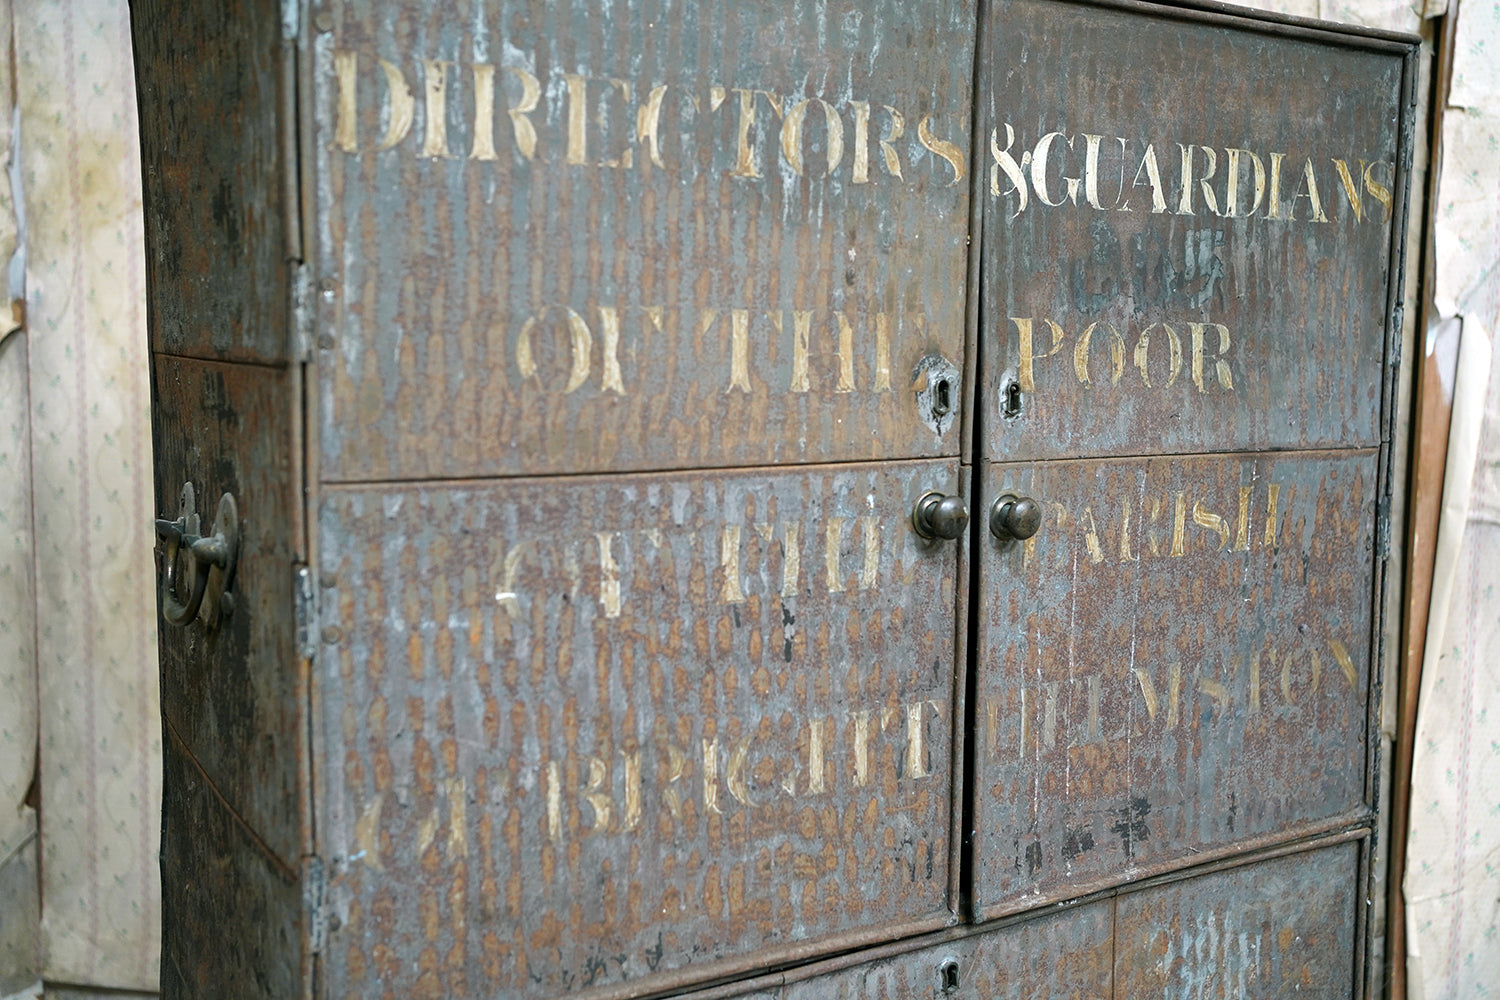 DIRECTORS & GUARDIANS
OF THE POOR
OF THE PARISH
OF BRIGHT HELMSTON